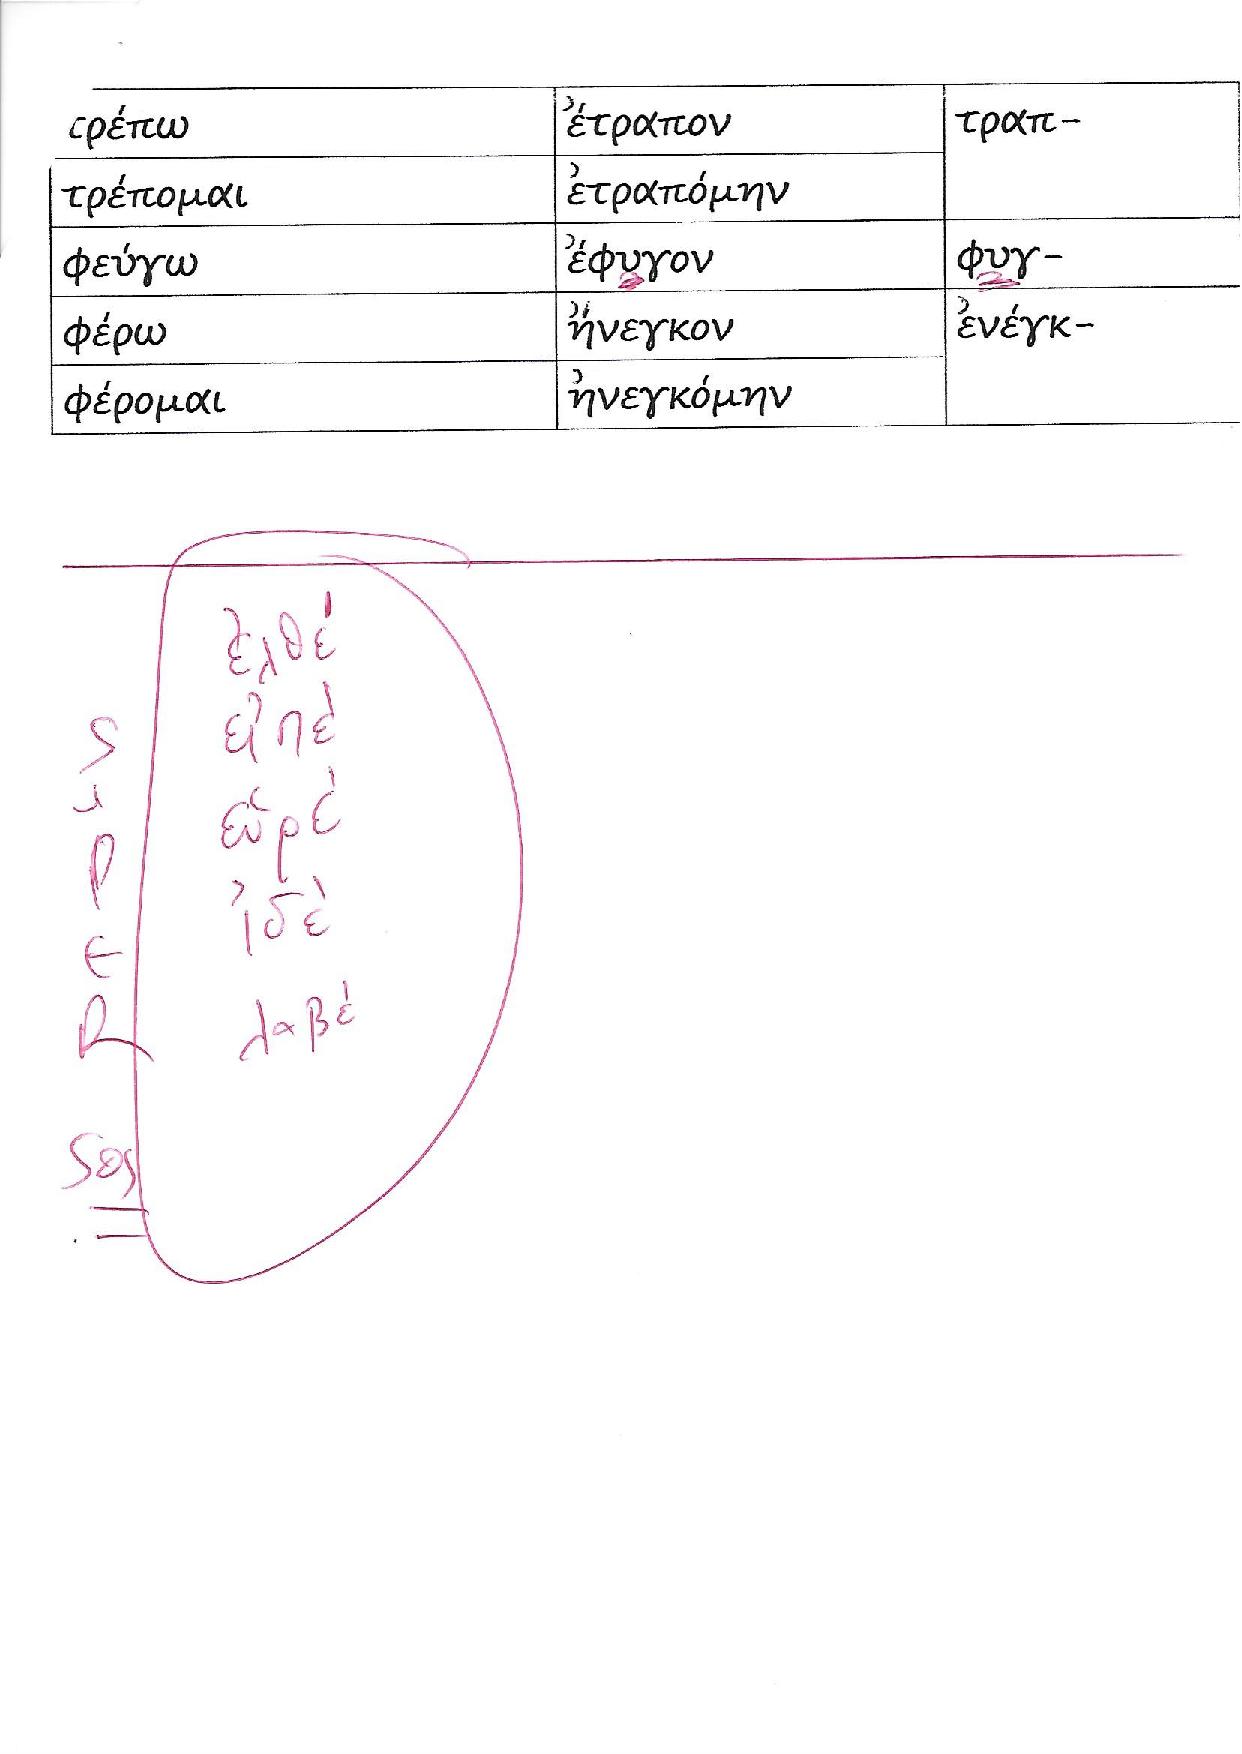 τρέπω ἔτραπον τραπ-
τρέπομαι ἐτραπόμην
φεύγω ἔφυγον φυγ-
φέρω ἤνεγκον ἐνέγκ-
φέρομαι ἠνεγκόμην
ἐλθέ
εἰπέ
εὑρέ
ἰδέ
λαβέ
SUPER
SOS